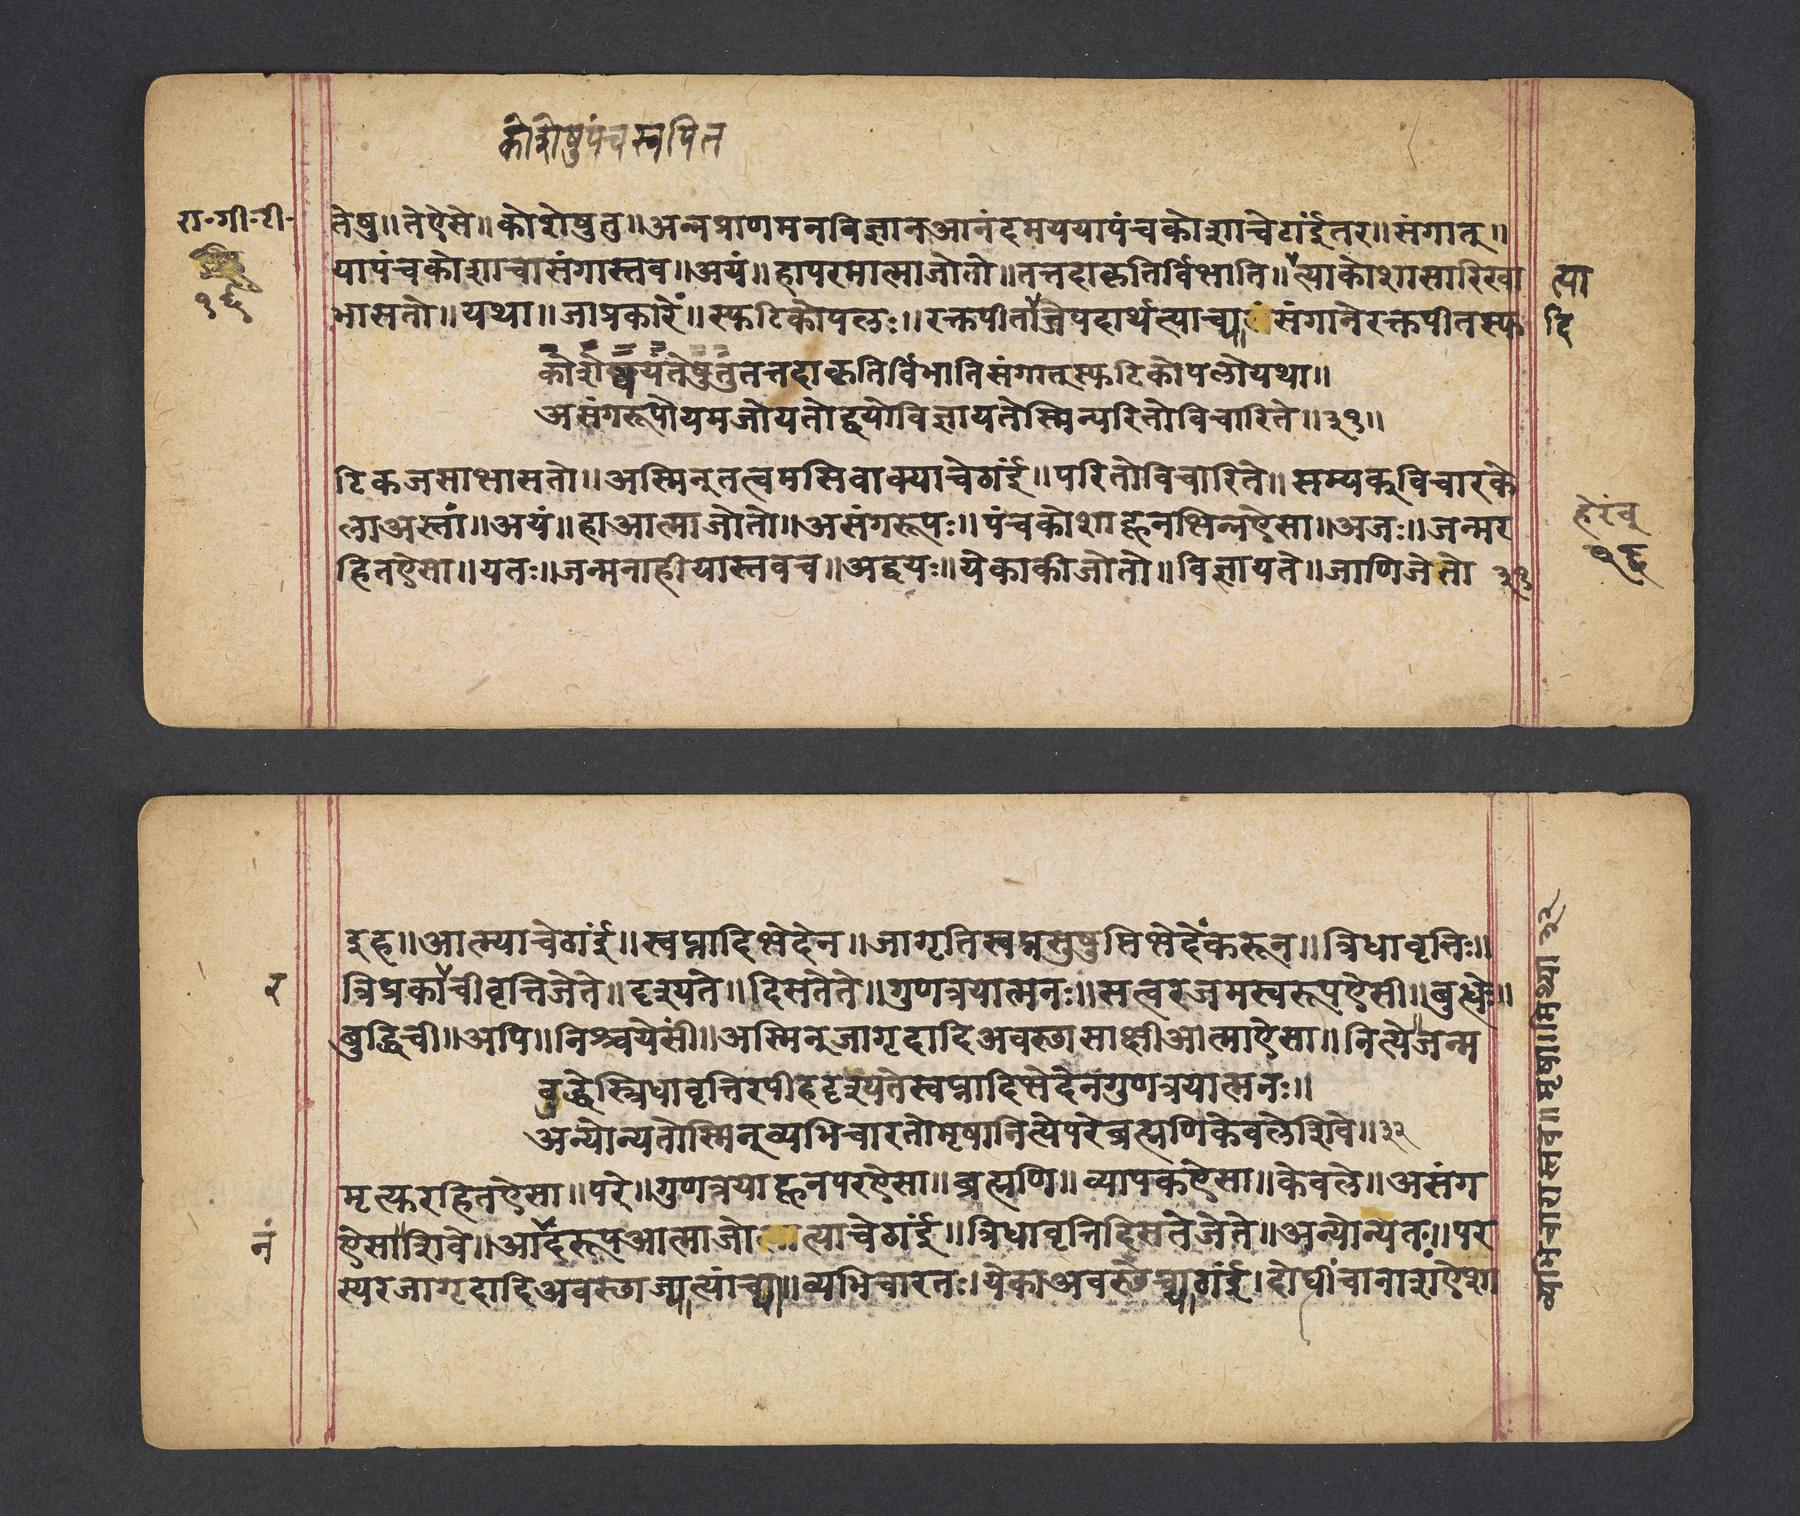 कोशेषुपंचस्वपित
रा॰गी॰टी॰
तेषु॥तेऐसे॥कोशेषुतु॥अन्नप्राणमनविज्ञानआनंदमययापंचकोशाचेठांईंतर॥संगात्॥
यापंचकोशाचासंगास्तव॥अयं॥हापरमात्माजोतो॥तत्तदाकृतिर्विभाति॥त्याकोशासारिखा
त्या
भासतो॥यथा॥जाप्रकारें॥स्फटिकोपलः॥रक्तपीताजेपदार्थत्याच्यासंगानेरक्तपीतस्फ
दि
१६
कोशेष्वयंतेषुतुतत्तदाकृतिर्विभातिसंगात्स्फटिकोपलोयथा॥
असंगरूपोयमजोयतोद्वयोविज्ञायतेस्मिन्परितोविचारिते॥३१॥
टिकजसाभासतो॥अस्मिन्तत्वमसिवाक्याचेठांईं॥परितोविचारिते॥सम्यक्विचारके
लाअस्तां॥अयं॥हाआत्माजोतो॥असंगरूपः॥पंचकोशाहूनभिन्नऐसा॥अजः॥जन्मर
हितऐसा॥यतः॥जन्मनाहीयास्तवच॥अद्वयः॥येकाकीजोतो॥विज्ञायते॥जाणिजेतो ३१
हेरंब
१६
इह॥आत्म्याचेठांईं॥स्वप्नादिभेदेन॥जागृतिस्वप्नसुषुप्तिभेदेंकरून॥त्रिधावृत्तिः॥
र
त्रिप्रकाचीवृत्तिजेते॥दृश्यते॥दिसतेते॥गुणत्रयात्मनः॥सत्वरजमस्वरूपऐसी॥बुत्धेः॥
बुद्धिची॥अपि॥निश्चयेसी॥अस्मिन्जागृदादिअवस्छासाक्षीआत्माऐसा॥नित्येजन्म
बुद्धेस्त्रिधावृत्तिरपीहदृश्यतेस्वप्नादिभेदेनगुणत्रयात्मनः॥
अन्योन्यतोस्मिन्व्यभिचारतोमृषानित्येपरेब्रह्मणिकेवलेशिवे॥३२
मृत्करहितऐसा॥परे॥गुणत्रयाहूनपरऐसा॥ब्रह्मणि॥व्यापकऐसा॥केवले॥असंग
नं
ऐसाशिवे॥आदरूपआत्माजोत्याचेठांईं॥त्रिधावृत्तिदिसतेजेते॥अन्योन्यतः॥पर
स्परजागृदादिअवस्छाज्यात्यांच्या॥व्यभिचारतः।येकाअवस्छेच्याठांईं।दोघींचानाशऐशा
व्यभिचारास्तव॥मृषा॥मिथ्या ३२